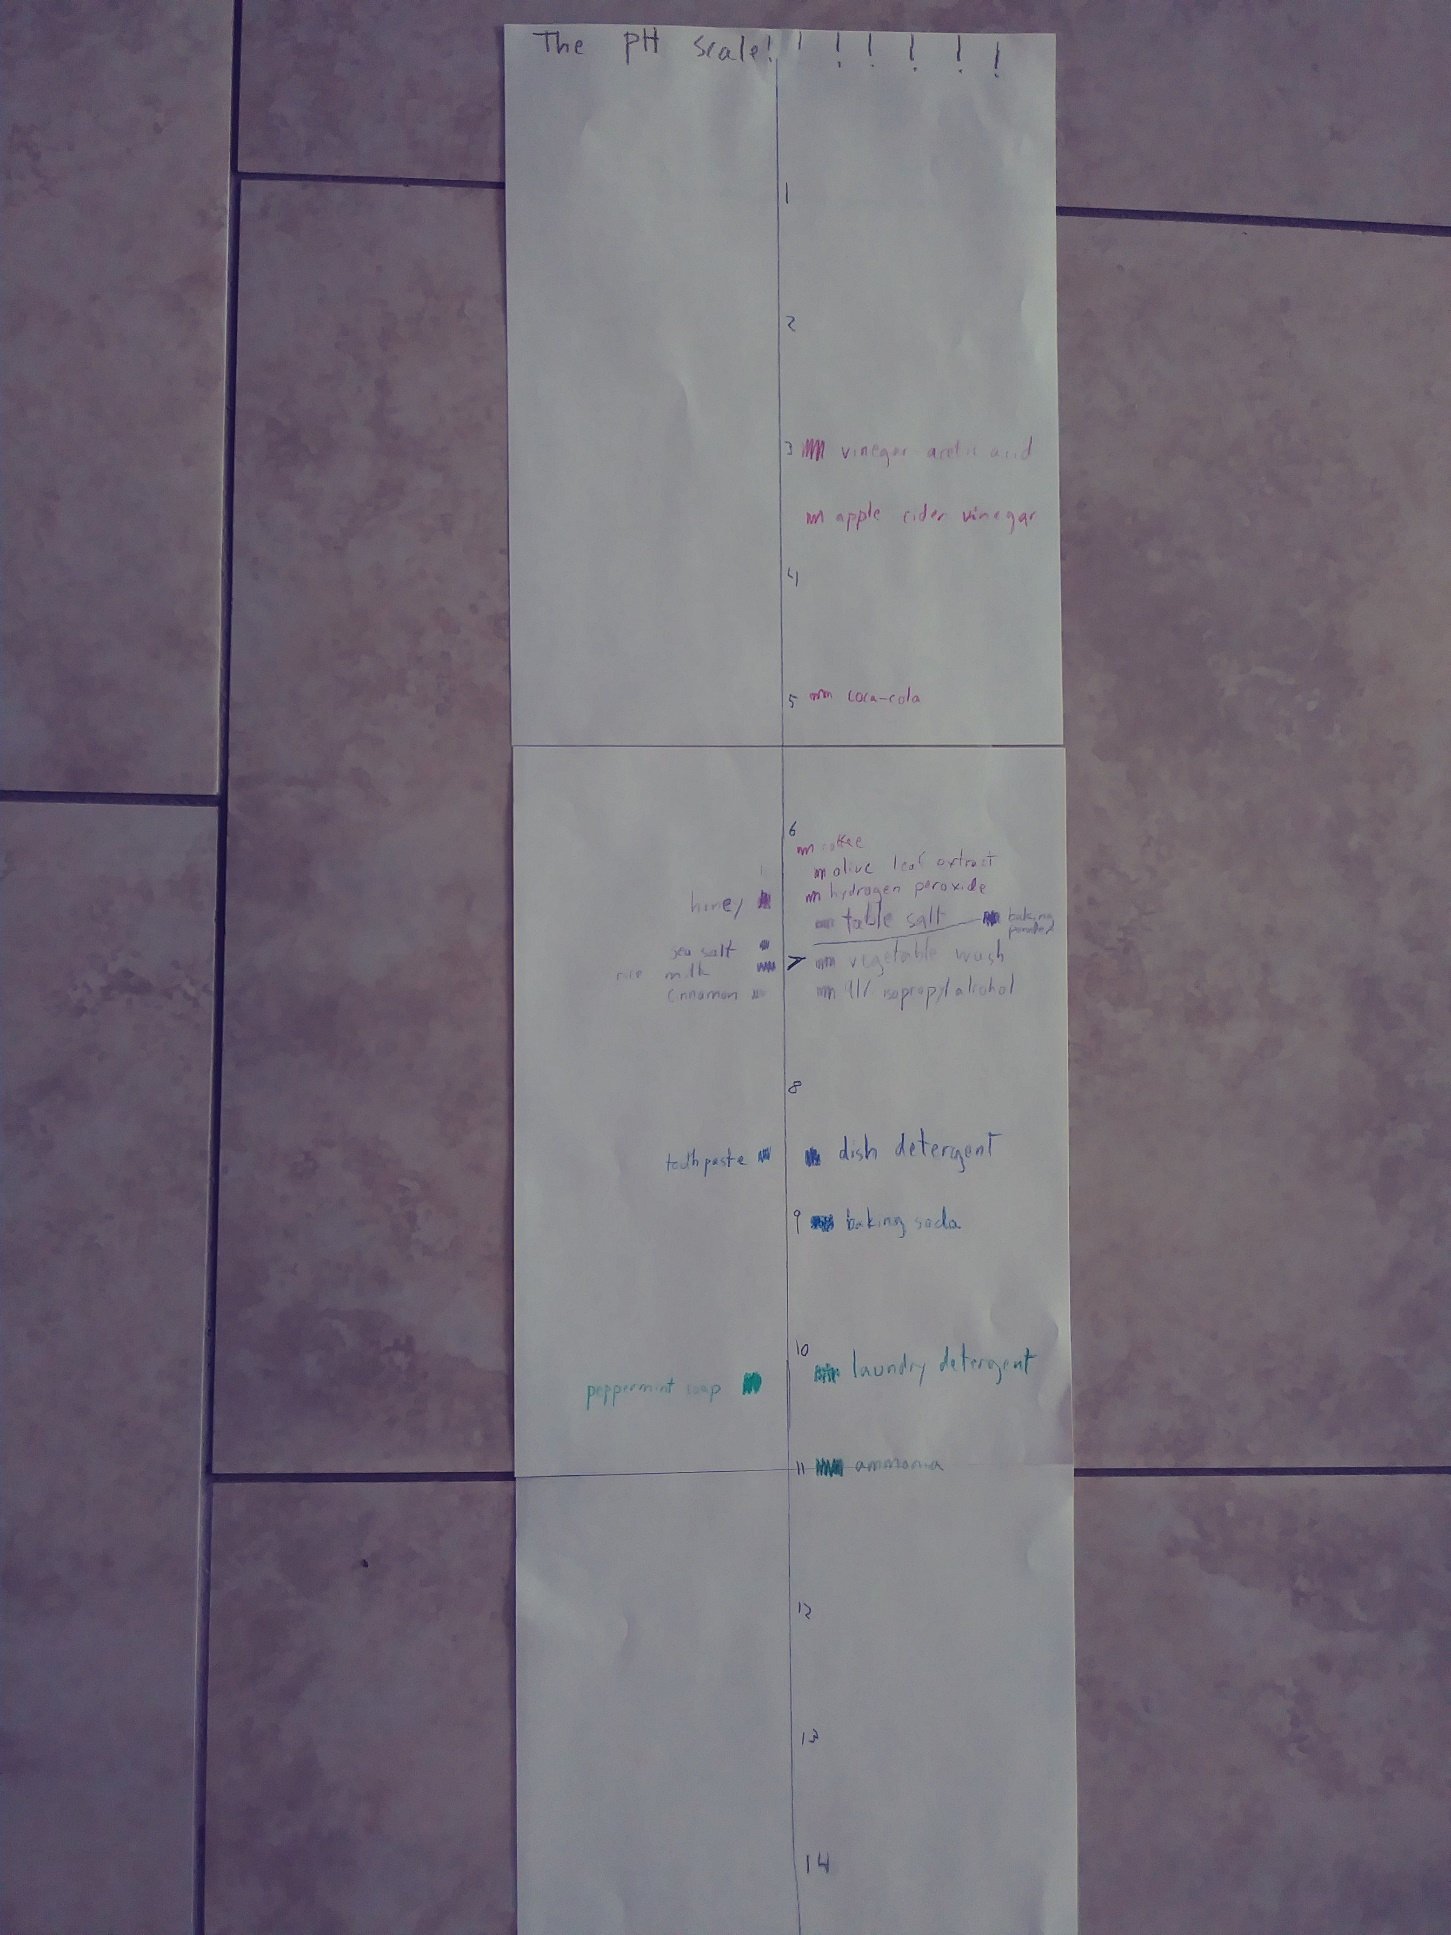 The pH scale! ! ! ! ! ! !
1
2
3 vinegar acetic acid
apple cider vinegar
4
5 coca-cola
6
coffee
olive leaf extract
honey hydrogen peroxide
table salt baking powder
sea salt
rice milk 7 vegetable wash
cinnamon 91% isopropyl alcohol
8
toothpaste dish detergent
9 baking soda
10
laundry detergent
peppermint soap
11 ammonia
12
13
14